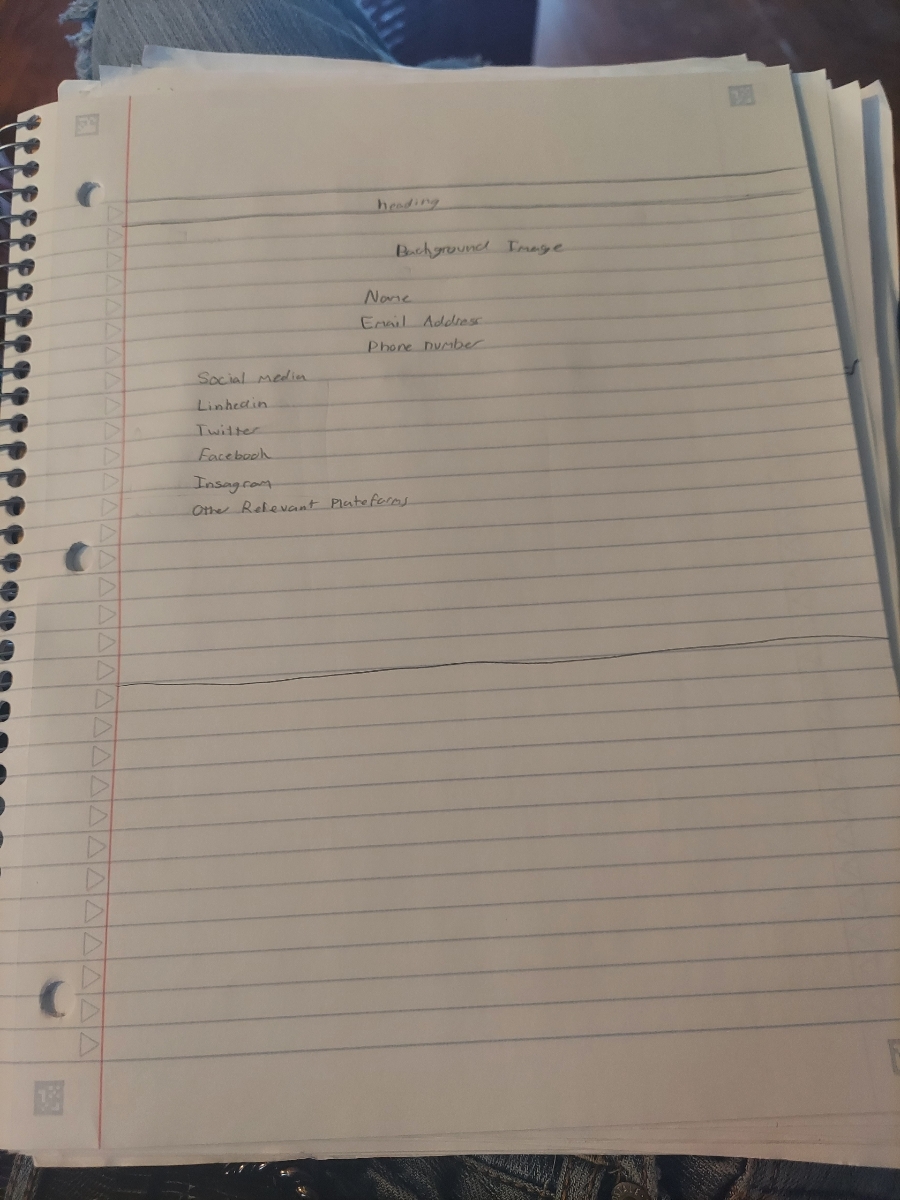 heading
Background Image
Name
Email Address
Phone number
Social media
Linkedin
Twitter
Facebook
Insagram
Other Relevant Plateforms